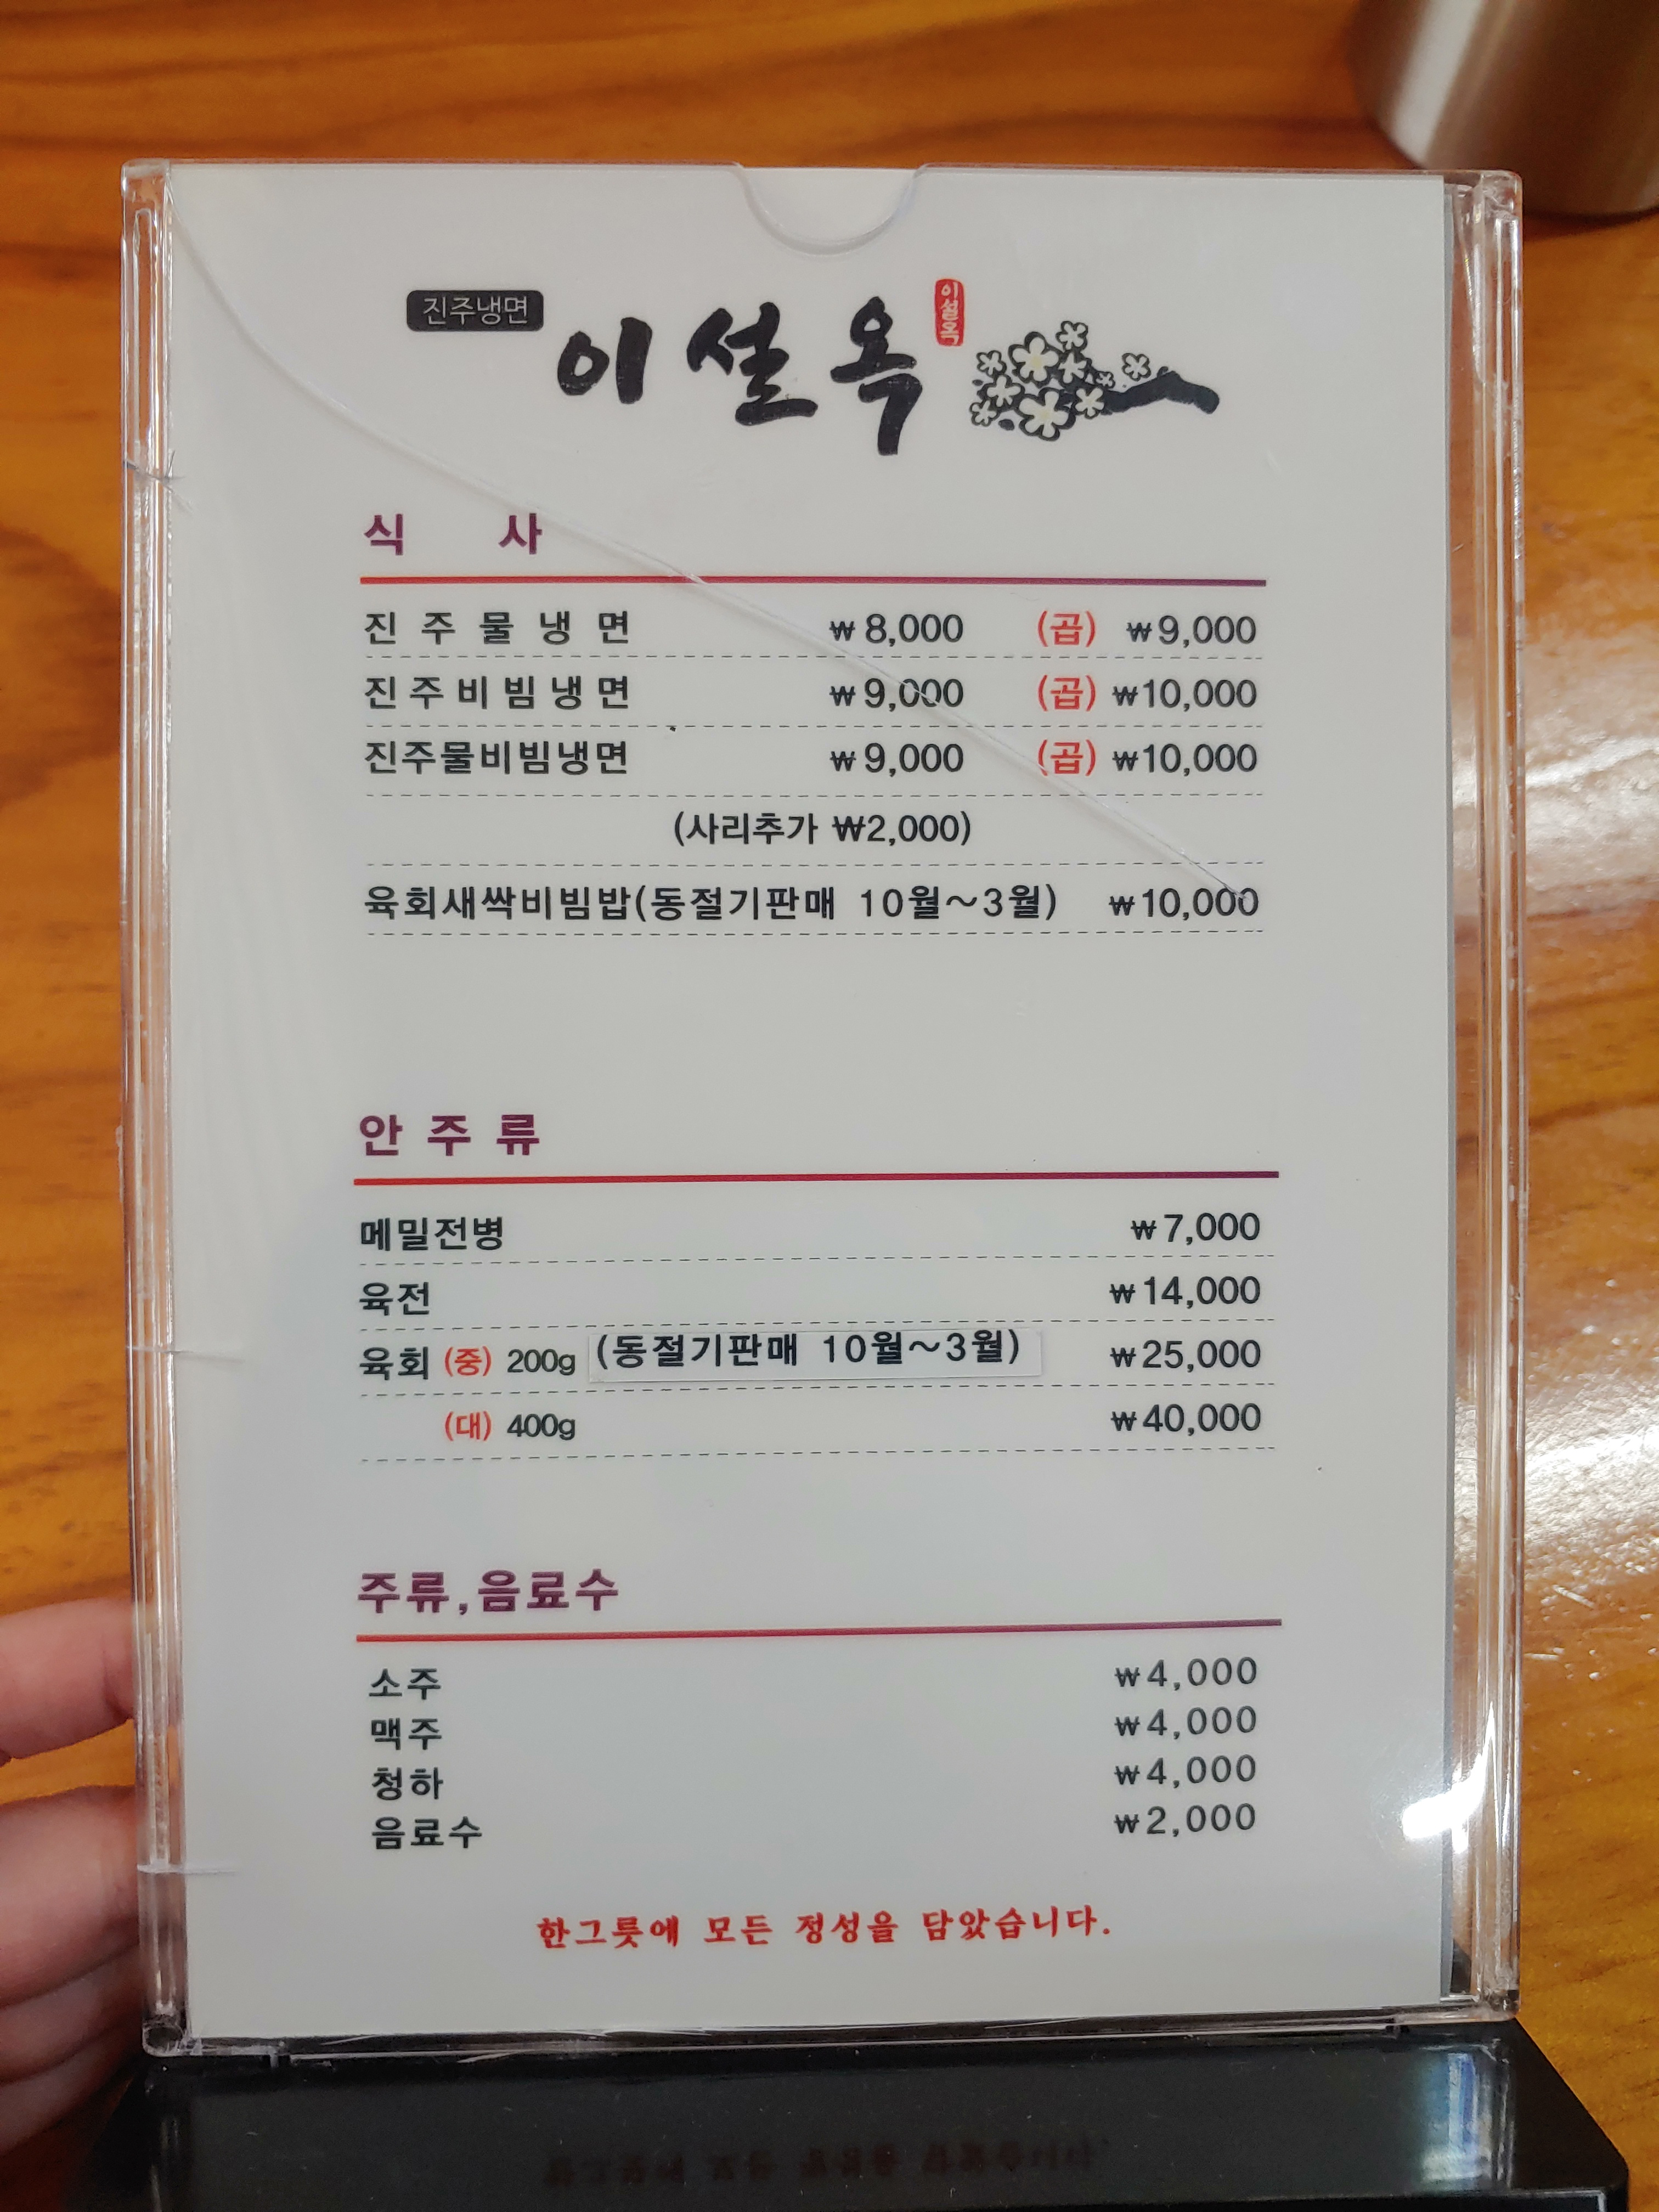 진주냉면 이설옥 이설옥
식 사
진주물냉면 ₩8,000 (곱) ₩9,000
진주비빔냉면 ₩9,000 (곱) ₩10,000
진주물비빔냉면 ₩9,000 (곱) ₩10,000
(사리추가 ₩2,000)
육회새싹비빔밥(동절기판매 10월~3월) ₩10,000
안주류
메밀전병 ₩7,000
육전 ₩14,000
육회 (중) 200g (동절기판매 10월~3월) ₩25,000
(대) 400g ₩40,000
주류,음료수
소주 ₩4,000
맥주 ₩4,000
청하 ₩4,000
음료수 ₩2,000
한그릇에 모든 정성을 담았습니다.